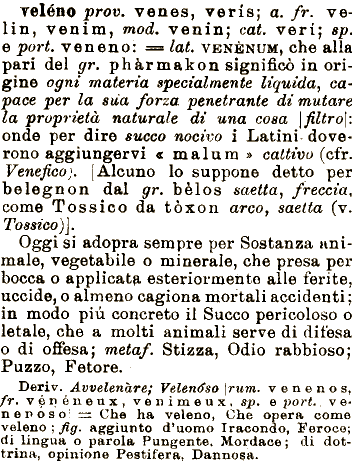 veléno prov. venes, verís; a. fr. ve-
lin, venim, mod. venin; cat. verí; sp.
e port. veneno: = lat. VENÈNUM, che alla
pari del gr. phàrmakon significò in ori-
gine ogni materia specialmente liquida, ca-
pace per la sua forza penetrante di mutare
la proprietà naturale di una cosa [filtro]:
onde per dire succo nocivo i Latini dove-
rono aggiungervi « malum » cattivo (cfr.
Venefico). [Alcuno lo suppone detto per
belegnon dal gr. bèlos saetta, freccia,
come Tossico da tòxon arco, saetta (v.
Tossico)].
Oggi si adopra sempre per Sostanza ani-
male, vegetabile o minerale, che presa per
bocca o applicata esteriormente alle ferite,
uccide, o almeno cagiona mortali accidenti;
in modo più concreto il Succo pericoloso o
letale, che a molti animali serve di difesa
o di offesa; metaf. Stizza, Odio rabbioso;
Puzzo, Fetore.
Deriv. Avvelenàre; Velenóso [rum. veninos,
fr. vénéneux, venimeux, sp. e port. ve-
nenoso] = Che ha veleno, Che opera come
veleno; fig. aggiunto d'uomo Iracondo, Feroce;
di lingua o parola Pungente, Mordace; di dot-
trina, opinione Pestifera, Dannosa.